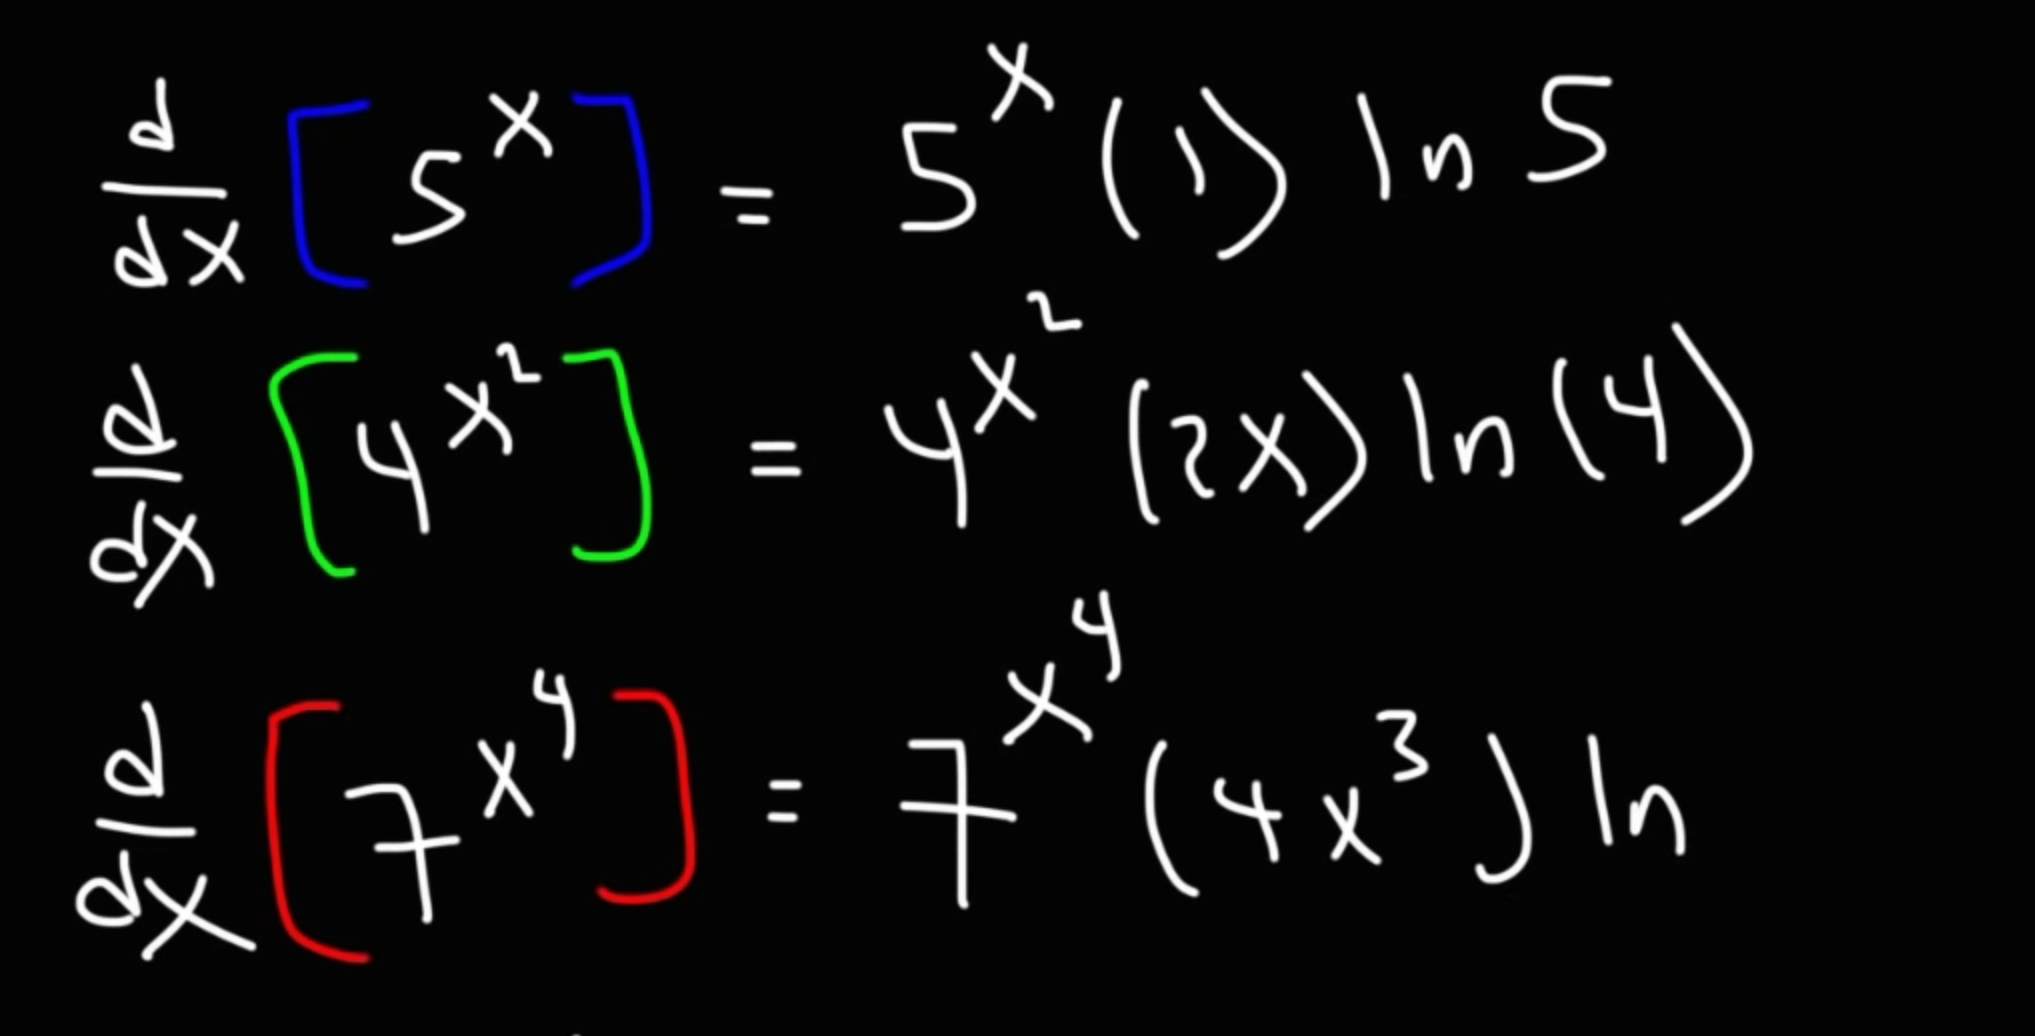 d/dx [5^x] = 5^x (1) ln 5
d/dx [4^x^2] = 4^x^2 (2x) ln (4)
d/dx [7^x^4] = 7^x^4 (4x^3) ln